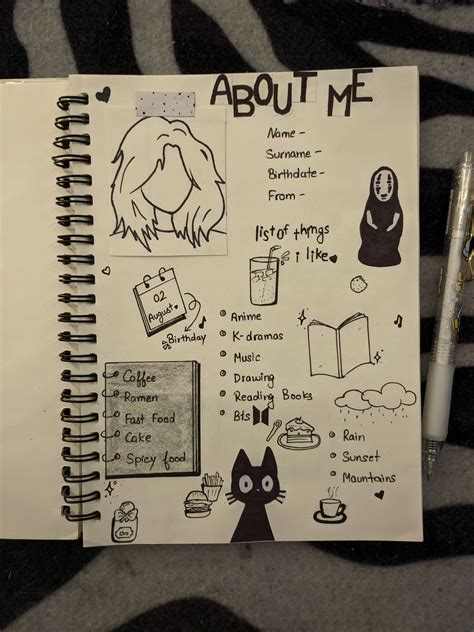 ABOUT ME
Name -
Surname -
Birthdate -
From -
list of things
i like
02
August
Birthday
Anime
K-dramas
Music
Drawing
Reading Books
Bts
Coffee
Ramen
Fast Food
Cake
Spicy food
Rain
Sunset
Mountains